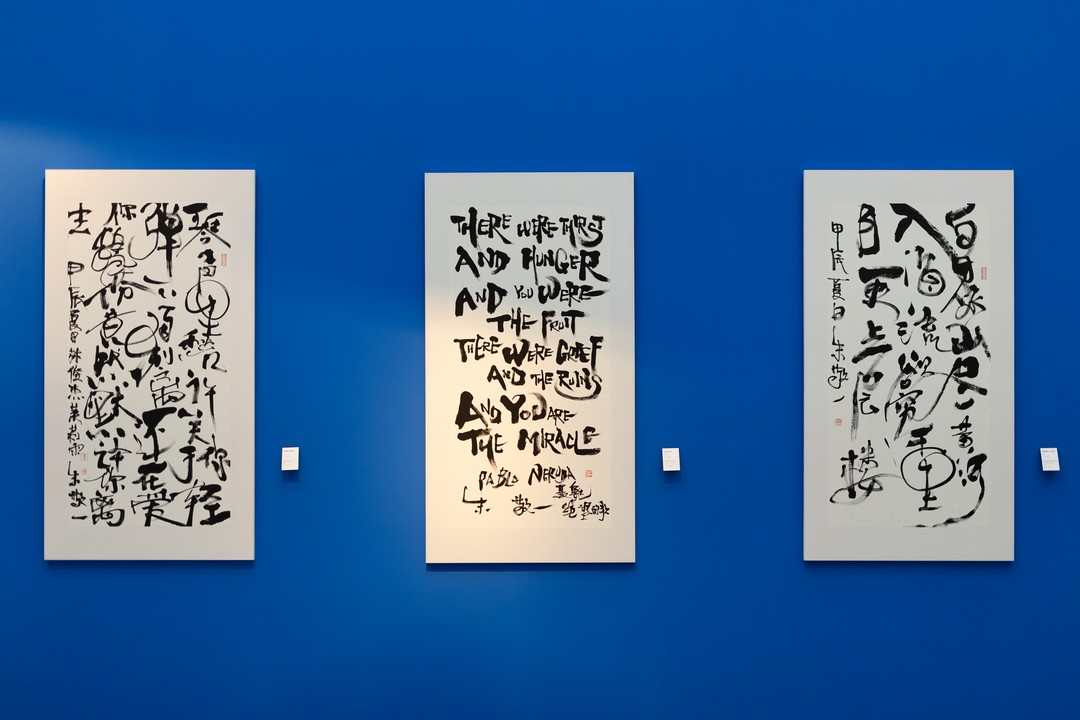 琴 几许 笑你轻
弹一首别离不在爱
你 默默许你离
去 甲辰夏日林俊杰茉莉雨朱敬一
THERE WERE THIRST
AND HUNGER
AND YOU WERE
THE FRUIT
THERE WERE GRIEF
AND THE RUINS
AND YOU ARE
THE MIRACLE
PABLO NERUDA
朱敬一
白日依山尽黄河
入海流欲穷千里
目更上一层楼
甲辰夏日朱敬一